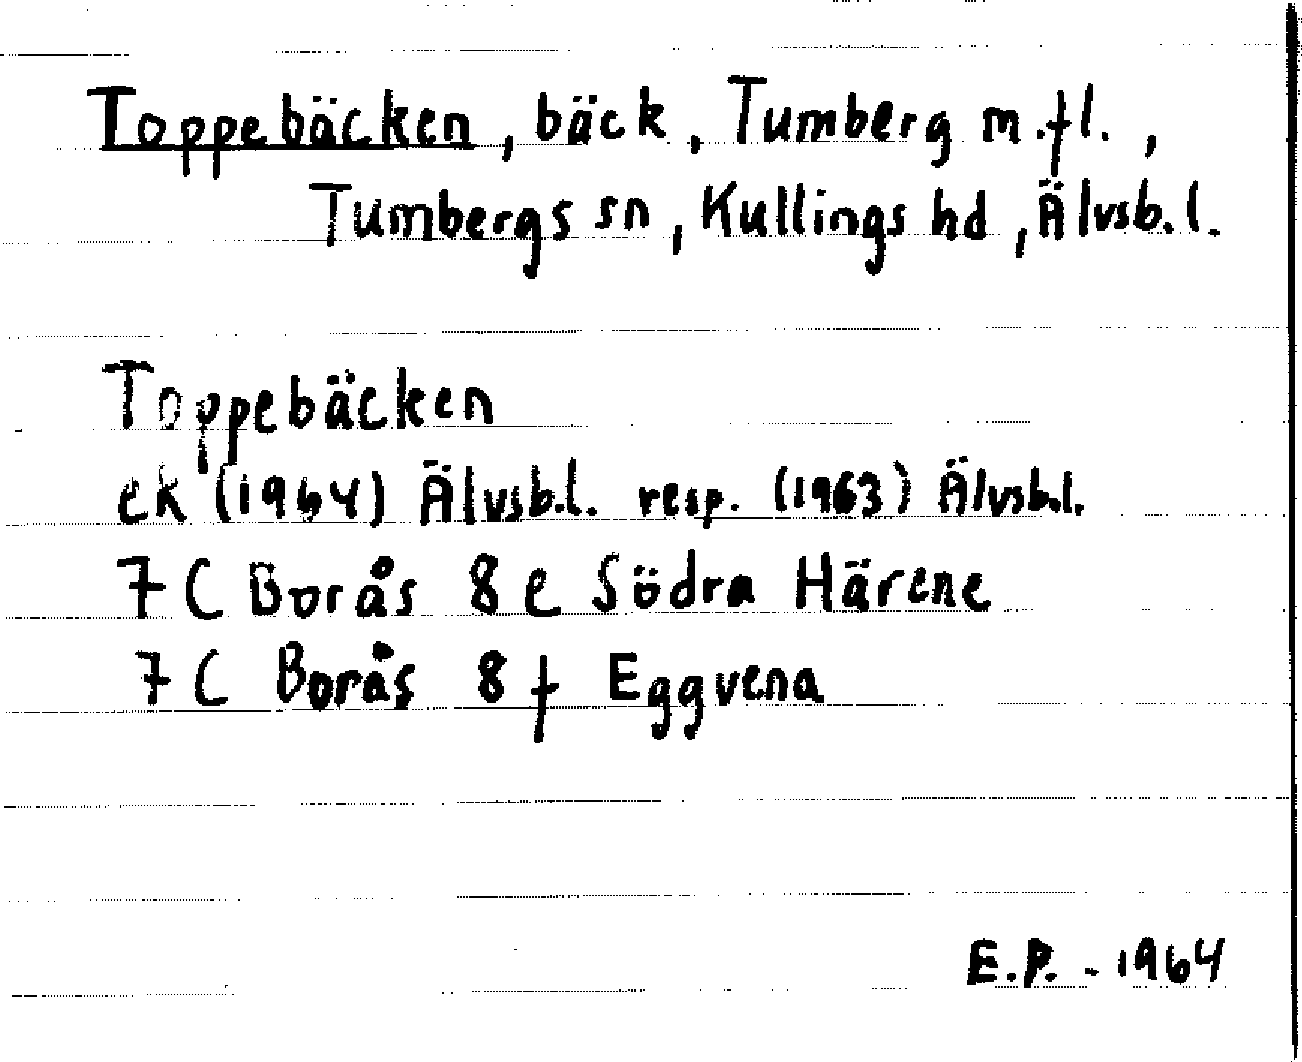 Toppebäcken, bäck, Tumberg m.fl.,
Tumbergs sn, Kullings hd, Älvsb.l.
Toppebäcken
ek (1964) Älvsb.l. resp. (1963) Älvsb.l.
7 C Borås 8 e Södra Härene
7 C Borås 8 f Eggvena
E.P. - 1964